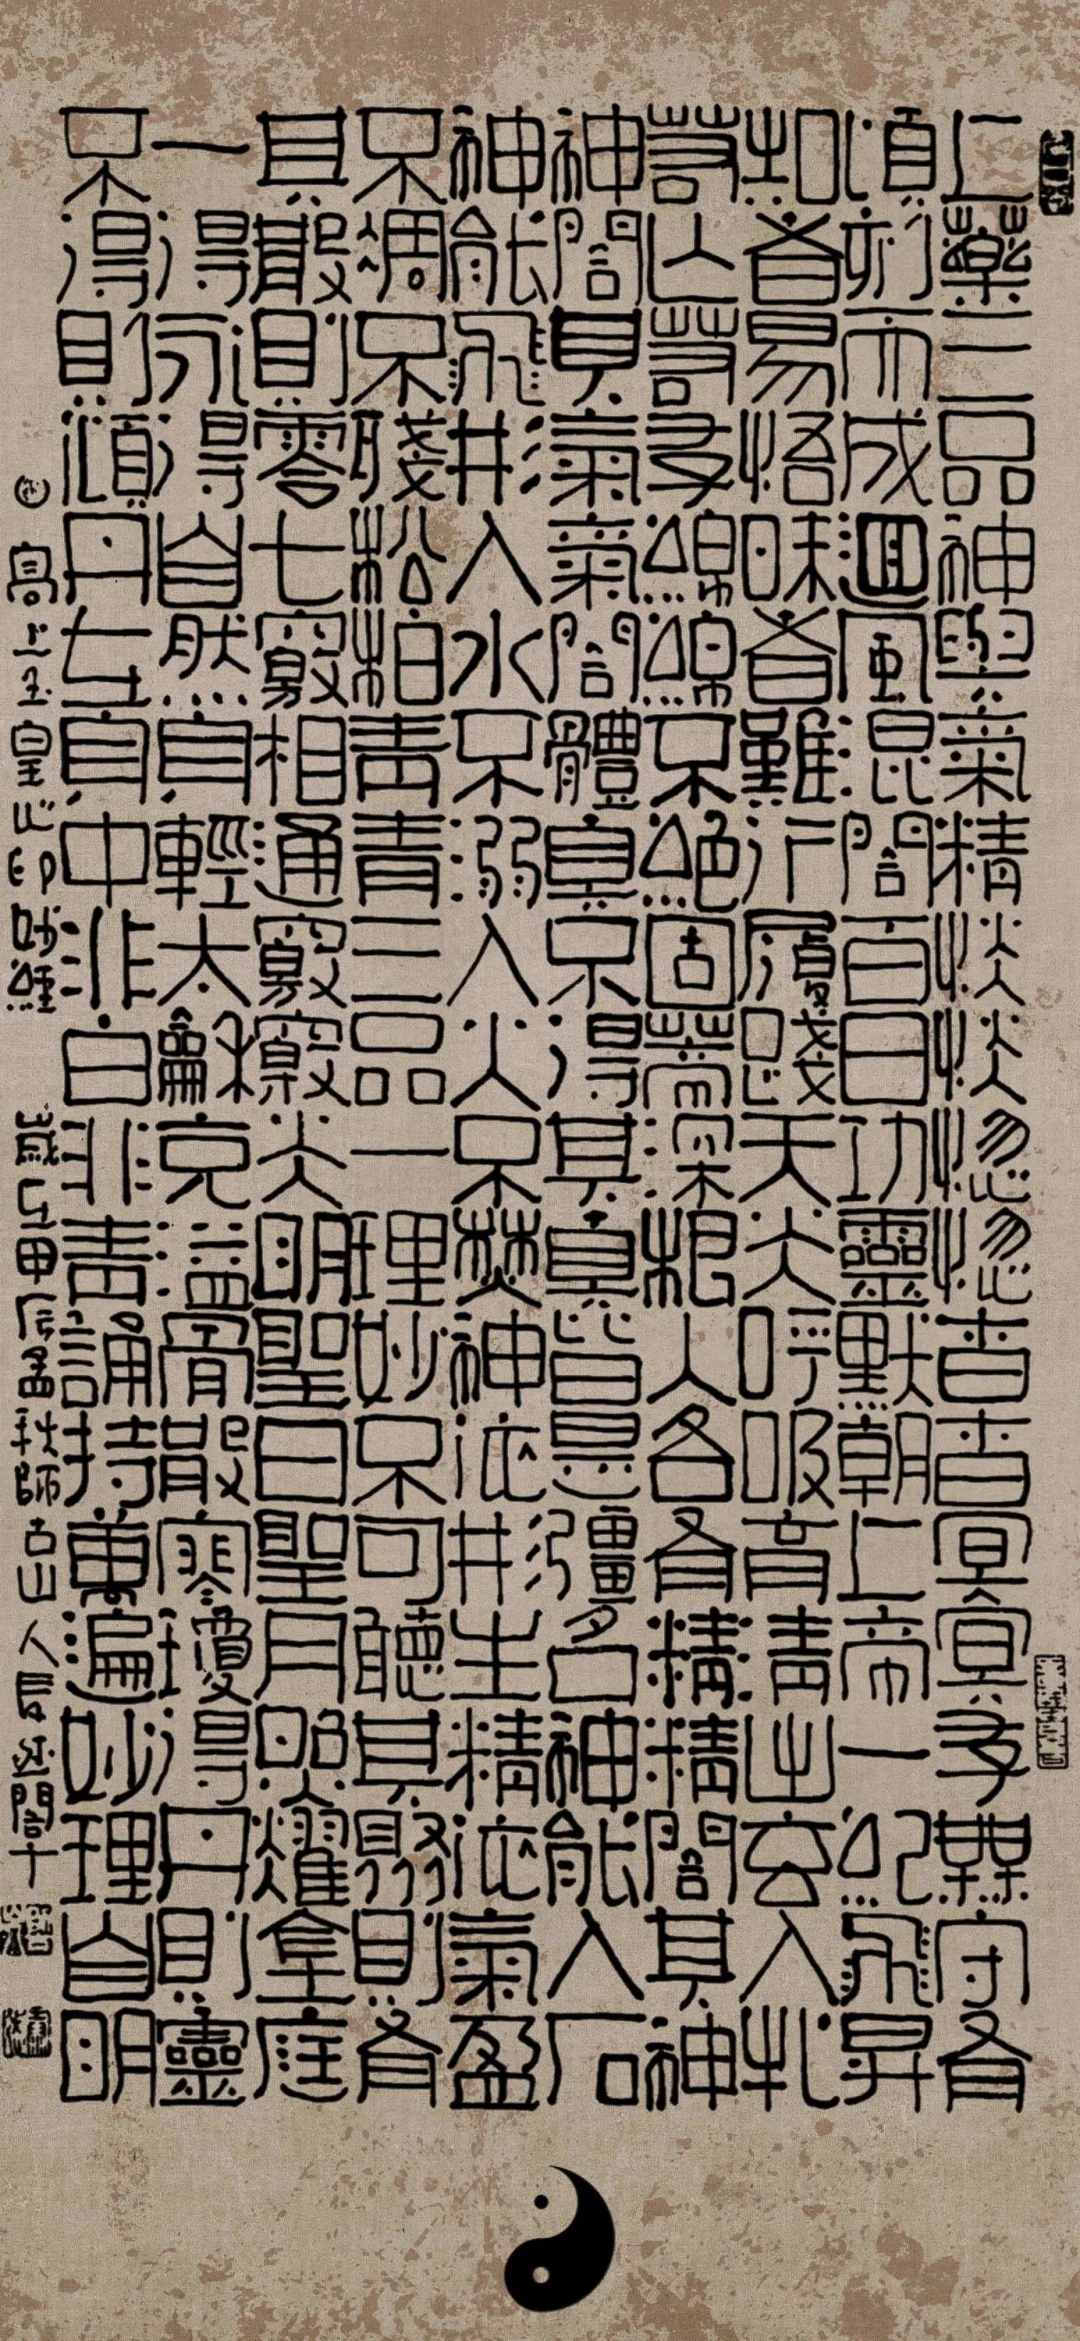 上藥三品神與氣精恍恍惚惚杳杳冥冥存無守有
頃刻而成迴風混合百日功靈默朝上帝一紀飛昇
知者易悟昧者難行履踐天光呼吸育清出玄入牝
若亡若存綿綿不絕固蒂深根人各有精精合其神
神合其氣氣合體真不得其真皆是彊名神能入石
神能飛形入水不溺入火不焚神依形生精依氣盈
不凋不殘松柏青青三品一理妙不可聽其聚則有
其散則零七竅相通竅竅光明聖日聖月照耀金庭
一得永得自然身輕太和充溢骨散寒瓊得丹則靈
不得則傾丹在身中非白非青誦持萬遍妙理自明
高上玉皇心印妙經 歲甲辰孟秋師古山人